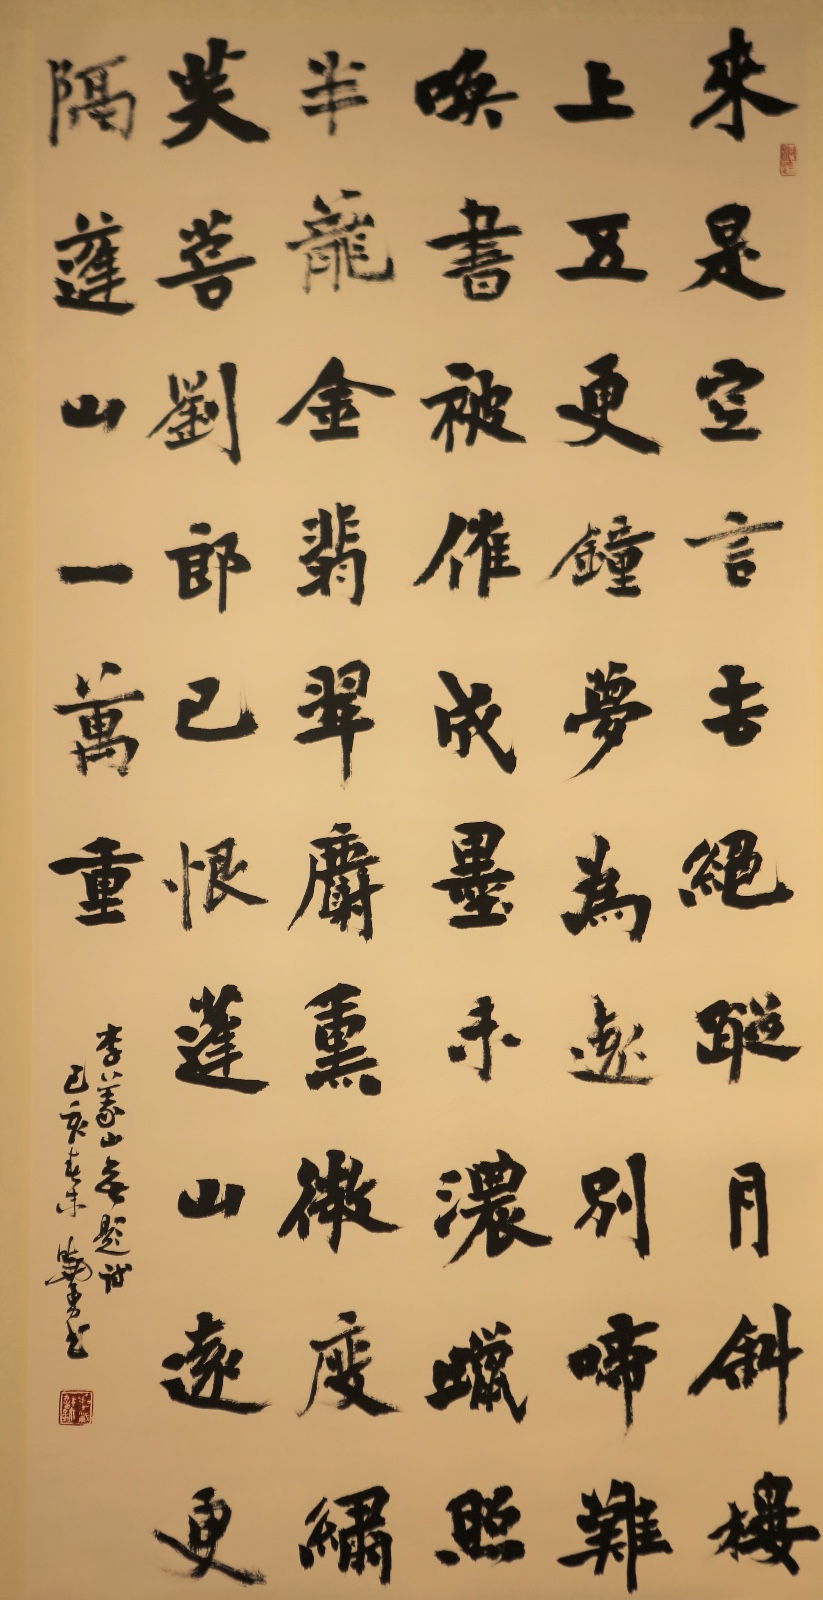 來是空言去絕蹤月斜樓
上五更鐘夢為遠別啼難
喚書被催成墨未濃蠟照
半籠金翡翠麝熏微度繡
芙蓉劉郎已恨蓬山遠更
隔蓬山一萬重
李義山無題詩
己亥春末